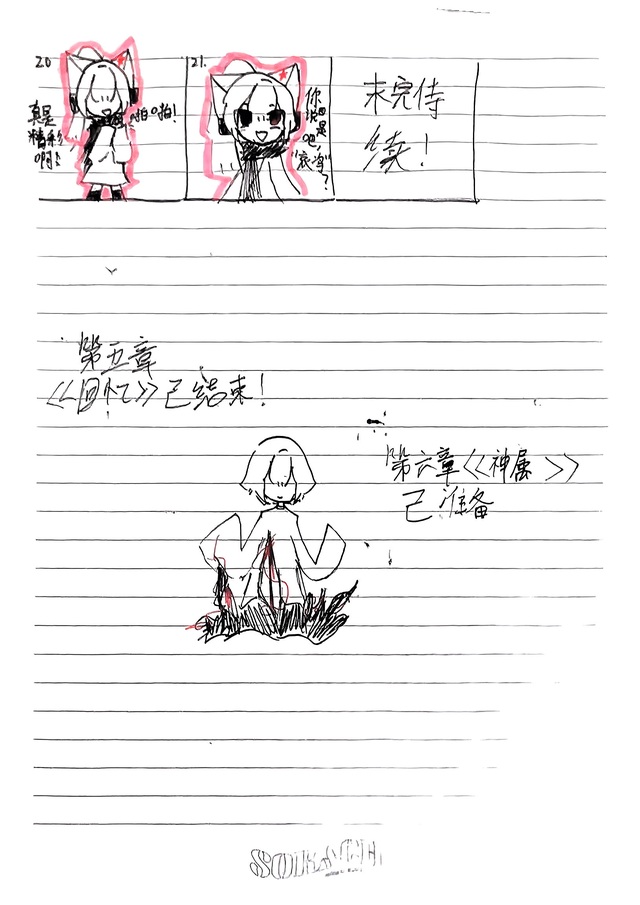 20
真是
精彩
啊！
啪啪！
21.
你
说是
吧，
？
未完待
续！
第五章
《回忆》已结束！
第六章《神属》
已准备